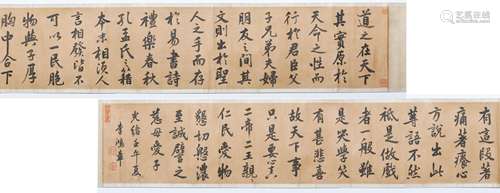 道之在天下
其實原於
天命之性而
行於君臣父
子兄弟夫婦
朋友之間其
文則出於聖
人之手而存
於易書詩
禮樂春秋
孔孟氏之籍
本末相須人
言相發皆不
可以一民胞
物與子厚
胸中合下
有這段著
痛著癢心
方說出此
等語不然
祗是做戲
者一般雖
是哭學笑
有甚悲喜
故天下事
只是要心真
二帝二王親
仁民愛物
懇切慇濃
至誠譬之
慈母愛子
光緒壬午夏
李鴻章